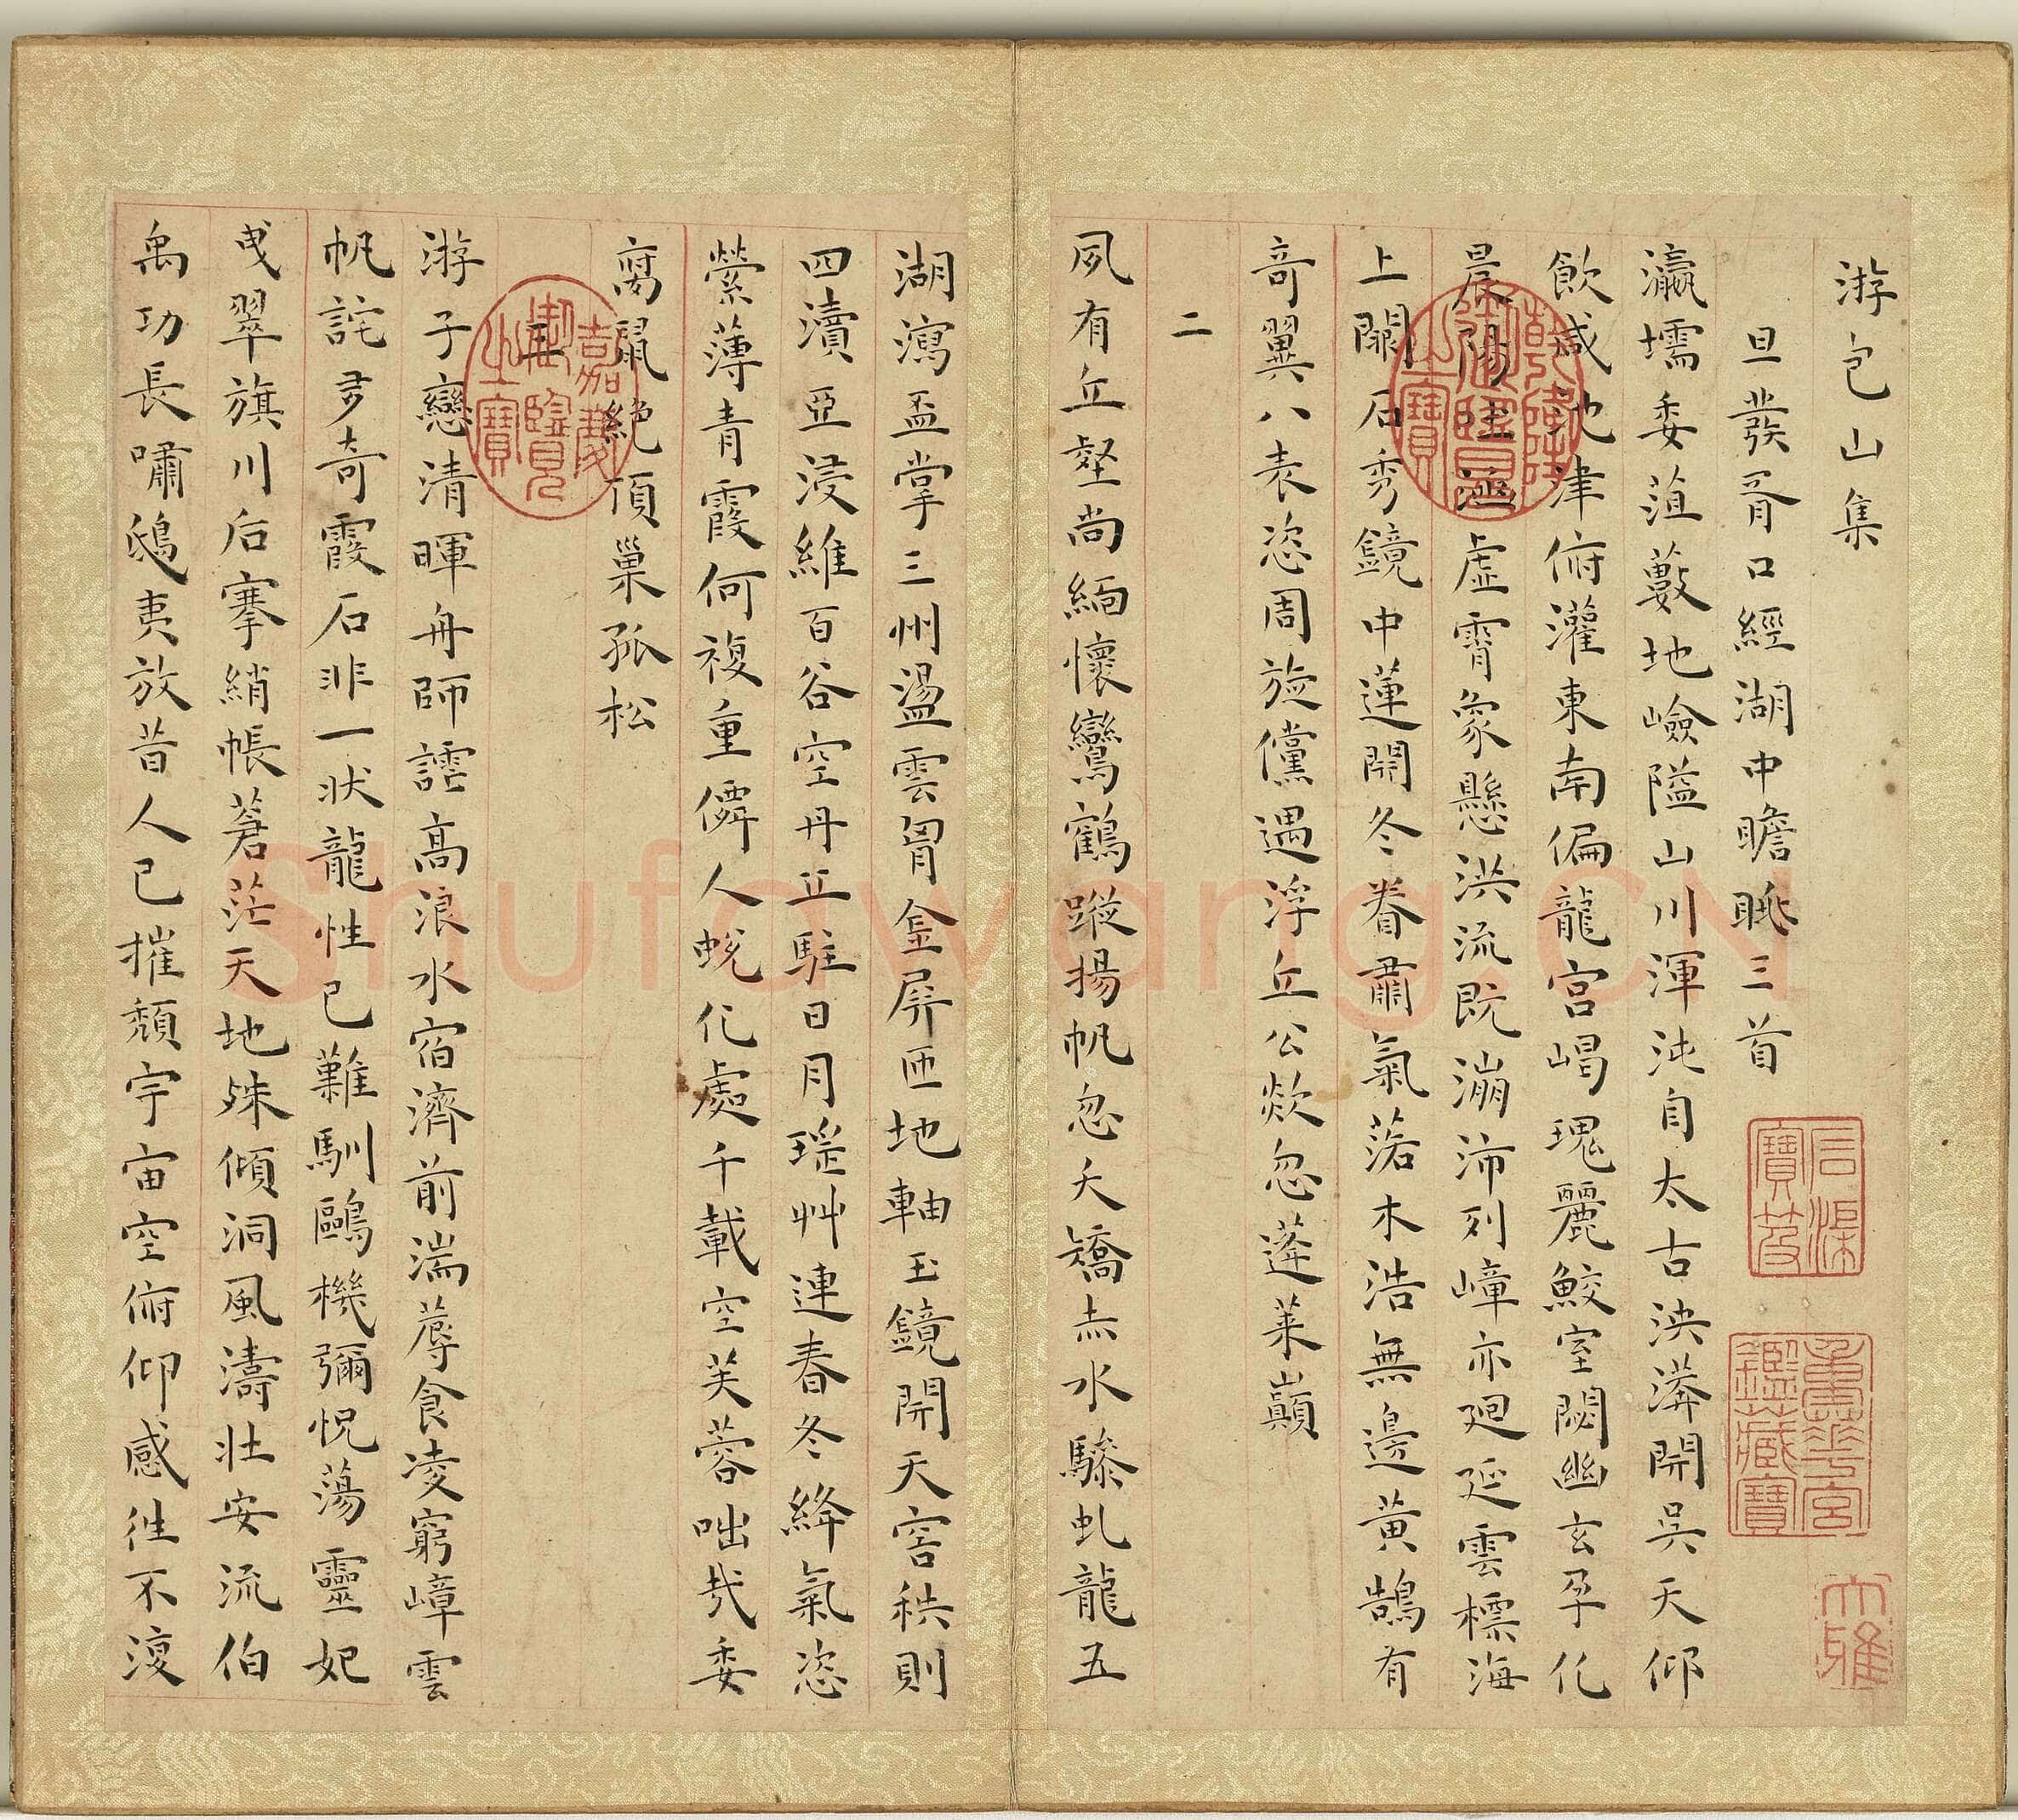 游包山集
旦發胥口經湖中瞻眺三首
瀛壖委菹藪地嶮隘山川渾沌自太古泱漭開吳天仰
飲咸池津俯灌東南偏龍宮崵瑰麗鮫室閟幽玄孕化
晨陽虛霄象懸洪流既漰沛列嶂亦廻延雲標海
上關石秀鏡中蓮開冬眷肅氣落木浩無邊黃鵠有
奇翼八表恣周旋儻遇浮丘公欻忽蓬萊巔
二
夙有丘壑尚緬懷鸞鶴蹤揚帆忽夭矯赤水驂虬龍五
湖瀉盃掌三州盪雲胷金屏匝地軸玉鏡開天容秩則
四瀆亞浸維百谷空丹丘駐日月瑤艸連春冬絳氣恣
縈薄青霞何複重僊人蛻化處千載空芙蓉咄哉委
腐鼠絶頂巢孤松
三
游子戀清暉舟師謡高浪水宿濟前湍蓐食凌窮嶂雲
帆詫多奇霞石非一狀龍性已難馴鷗機彌怳蕩靈妃
曳翠旗川后搴綃帳蒼茫天地殊傾洞風濤壯安流伯
禹功長嘯鴟夷放昔人已摧頹宇宙空俯仰感往不復
乾隆御覽之寶
嘉慶御覽之寶
石渠寶笈
重華宮鑑藏寶
大雅
Shufawang.CN